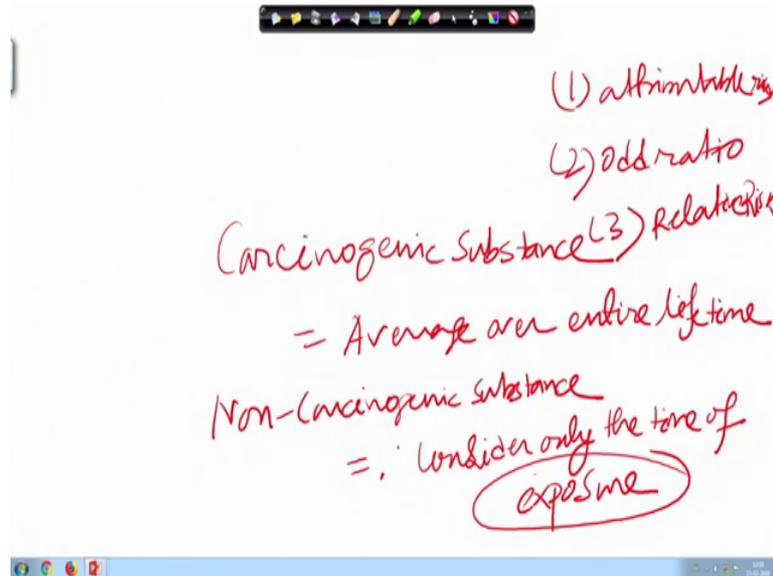 (1) attributable risk
(2) Odd ratio
Carcinogenic Substance (3) Relative Risk
= Average over entire lifetime
Non-Carcinogenic substance
= Consider only the time of
exposure